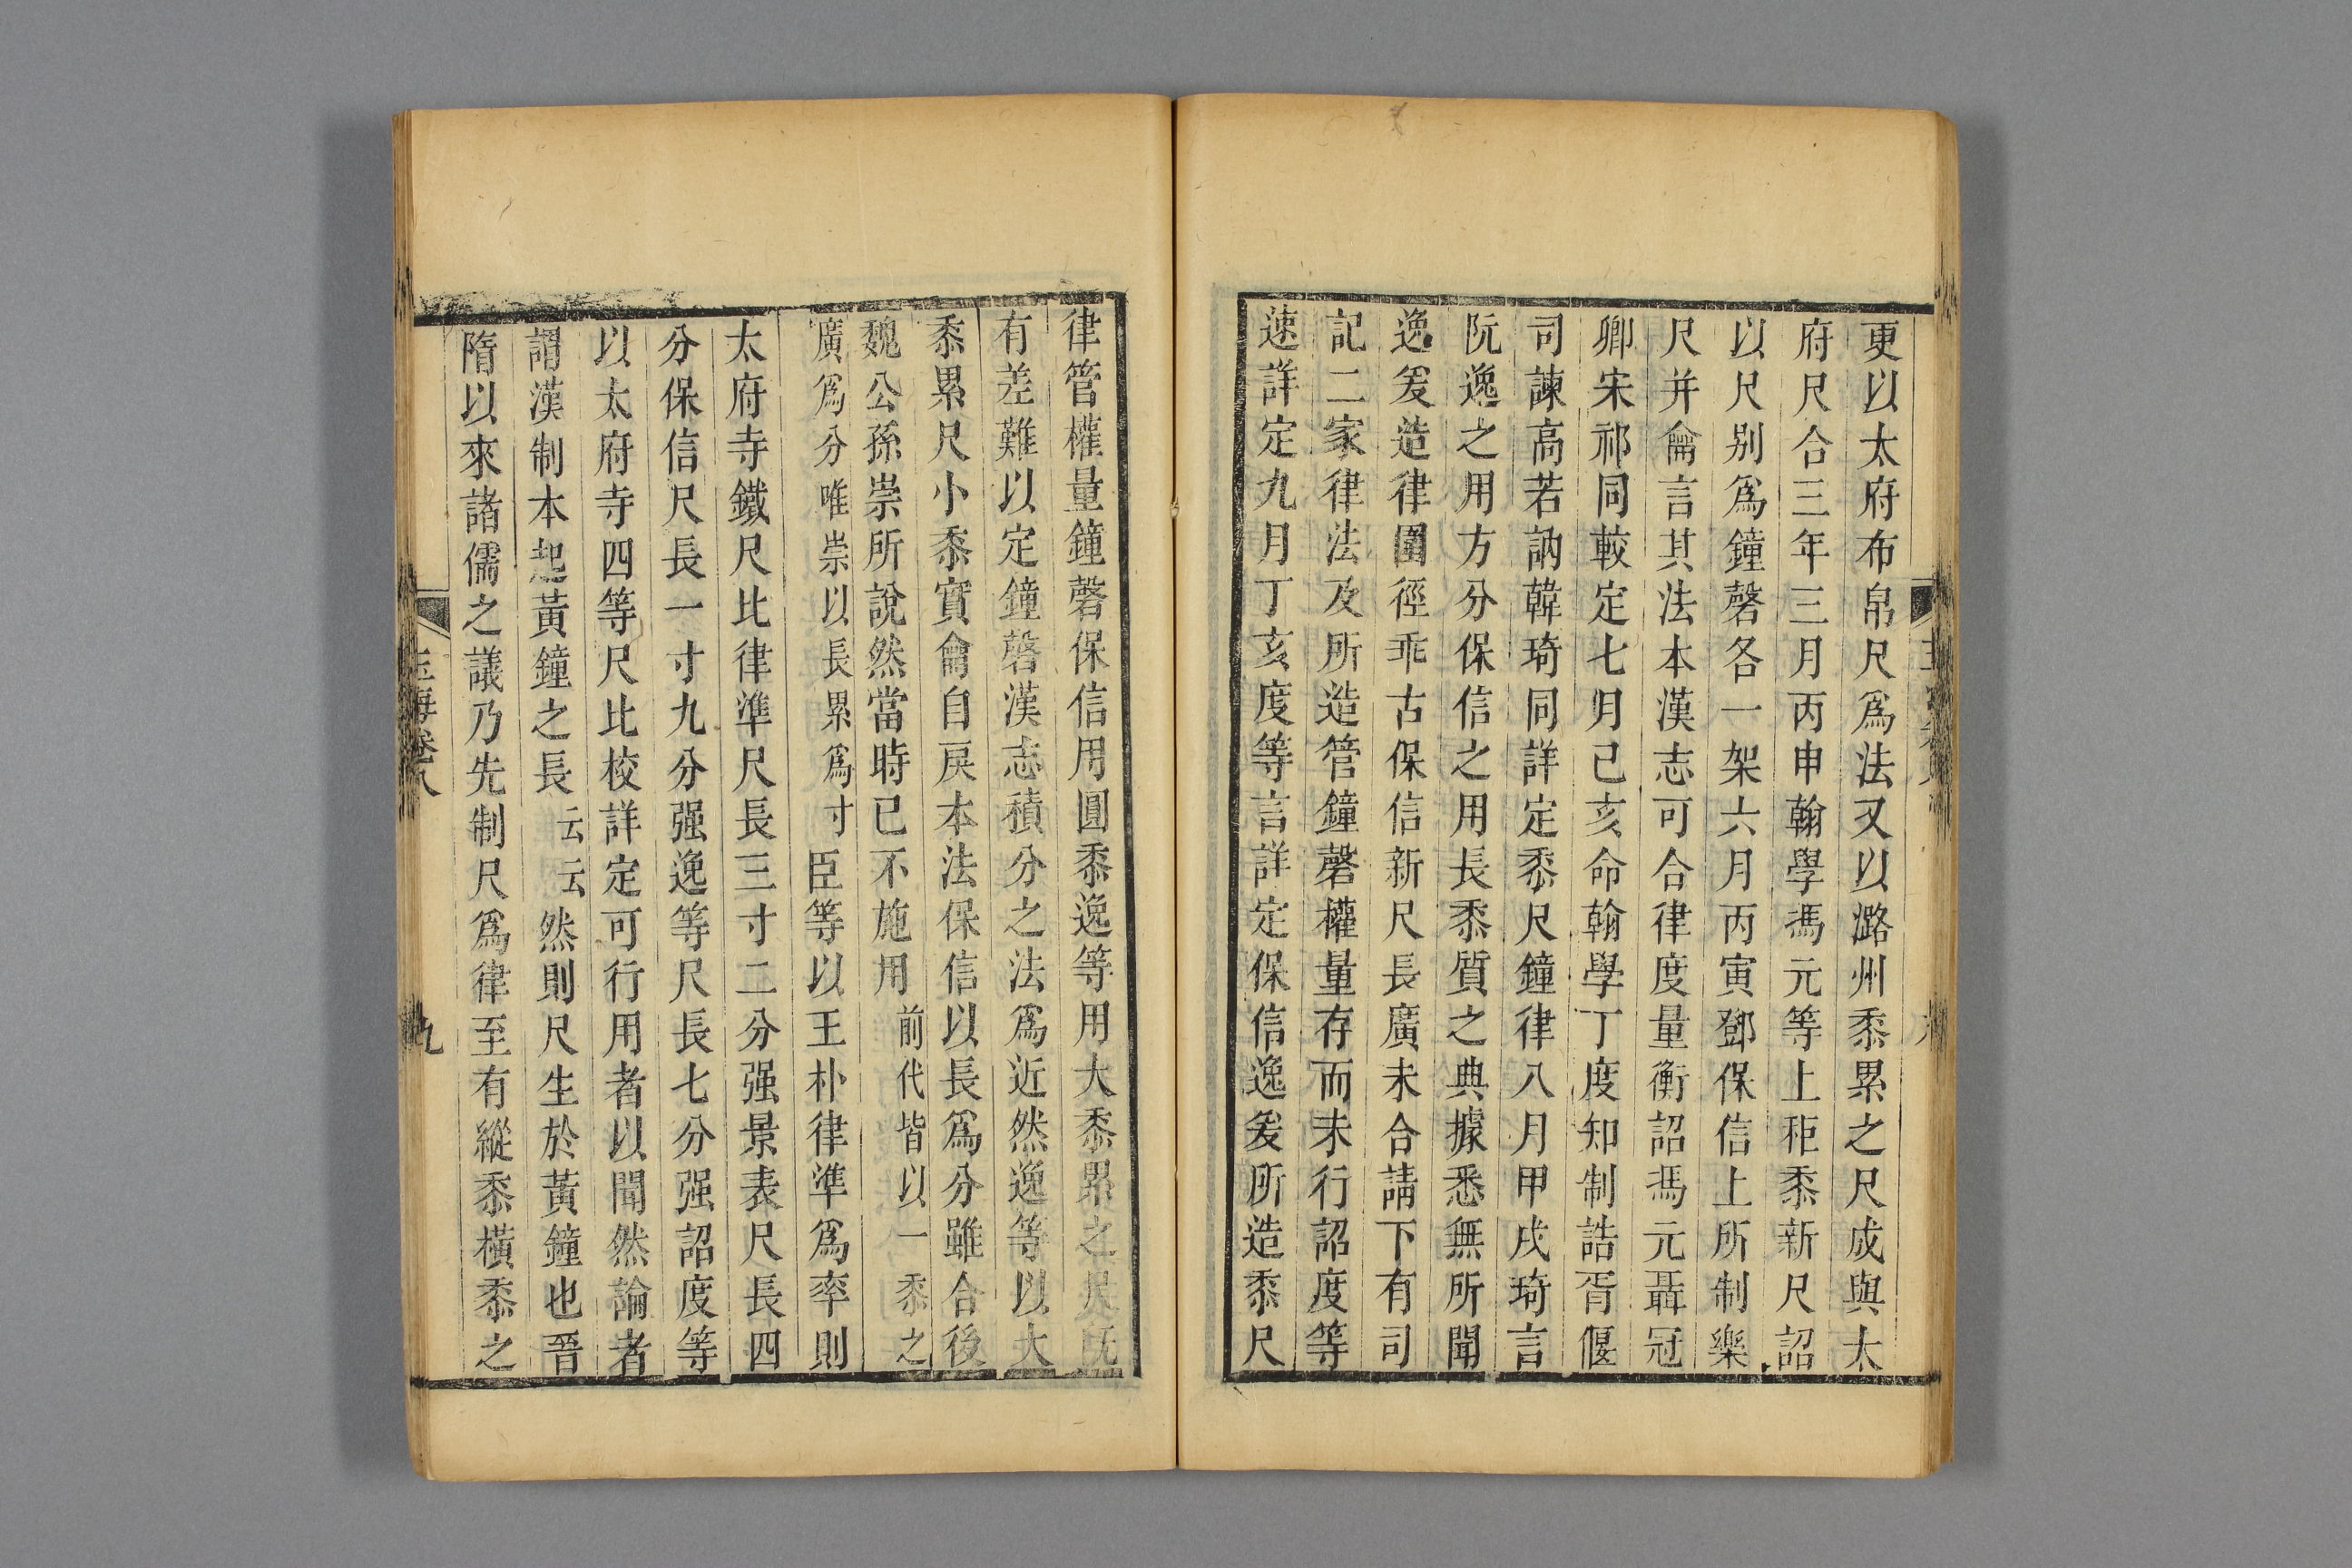 更以太府布帛尺爲法又以潞州黍累之尺成與太
府尺合三年三月丙申翰學馮元等上秬黍新尺詔
以尺别爲鐘磬各一架六月丙寅鄧保信上所制樂
尺并龠言其法本漢志可合律度量衡詔馮元聶冠
卿宋祁同較定七月己亥命翰學丁度知制誥胥偃
司諫高若訥韓琦同詳定黍尺鐘律八月甲戌琦言
阮逸之用方分保信之用長黍質之典據悉無所聞
逸瑗造律圍徑乖古保信新尺長廣未合請下有司
記二家律法及所造管鐘磬權量存而未行詔度等
速詳定九月丁亥度等言詳定保信逸瑗所造黍尺
律管權量鐘磬保信用圓黍逸等用大黍累之尺既
有差難以定鐘磬漢志積分之法爲近然逸等以大
黍累尺小黍實龠自戾本法保信以長爲分雖合後
魏公孫崇所說然當時已不施用前代皆以一黍之
廣爲分唯崇以長累爲寸臣等以王朴律準爲率則
太府寺鐵尺比律準尺長三寸二分强景表尺長四
分保信尺長一寸九分强逸等尺長七分强詔度等
以太府寺四等尺比校詳定可行用者以聞然論者
謂漢制本起黃鐘之長云云然則尺生於黃鐘也晉
隋以來諸儒之議乃先制尺爲律至有縱黍橫黍之
玉海卷八
九